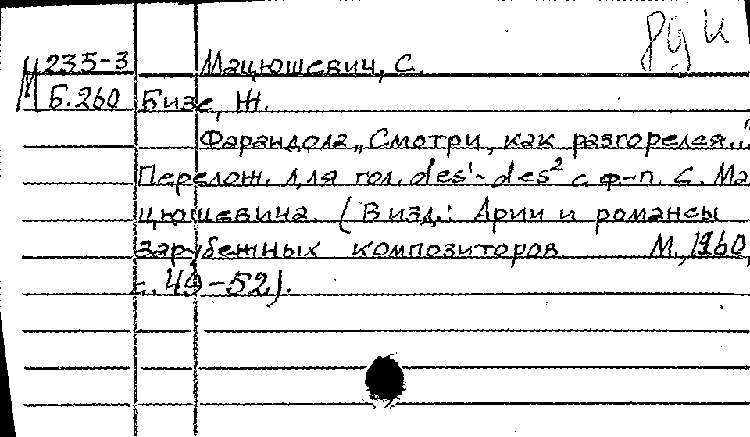 М 235-3 Мацюшевич, С.
Б.260 Бизе, Ж.
Фарандола „Смотри, как разгорелся..."
Перелож. для гол. des¹- des² с ф-п. С. Ма
цюшевича. (В изд.: Арии и романсы
зарубежных композиторов М., 1960,
с. 49-52).